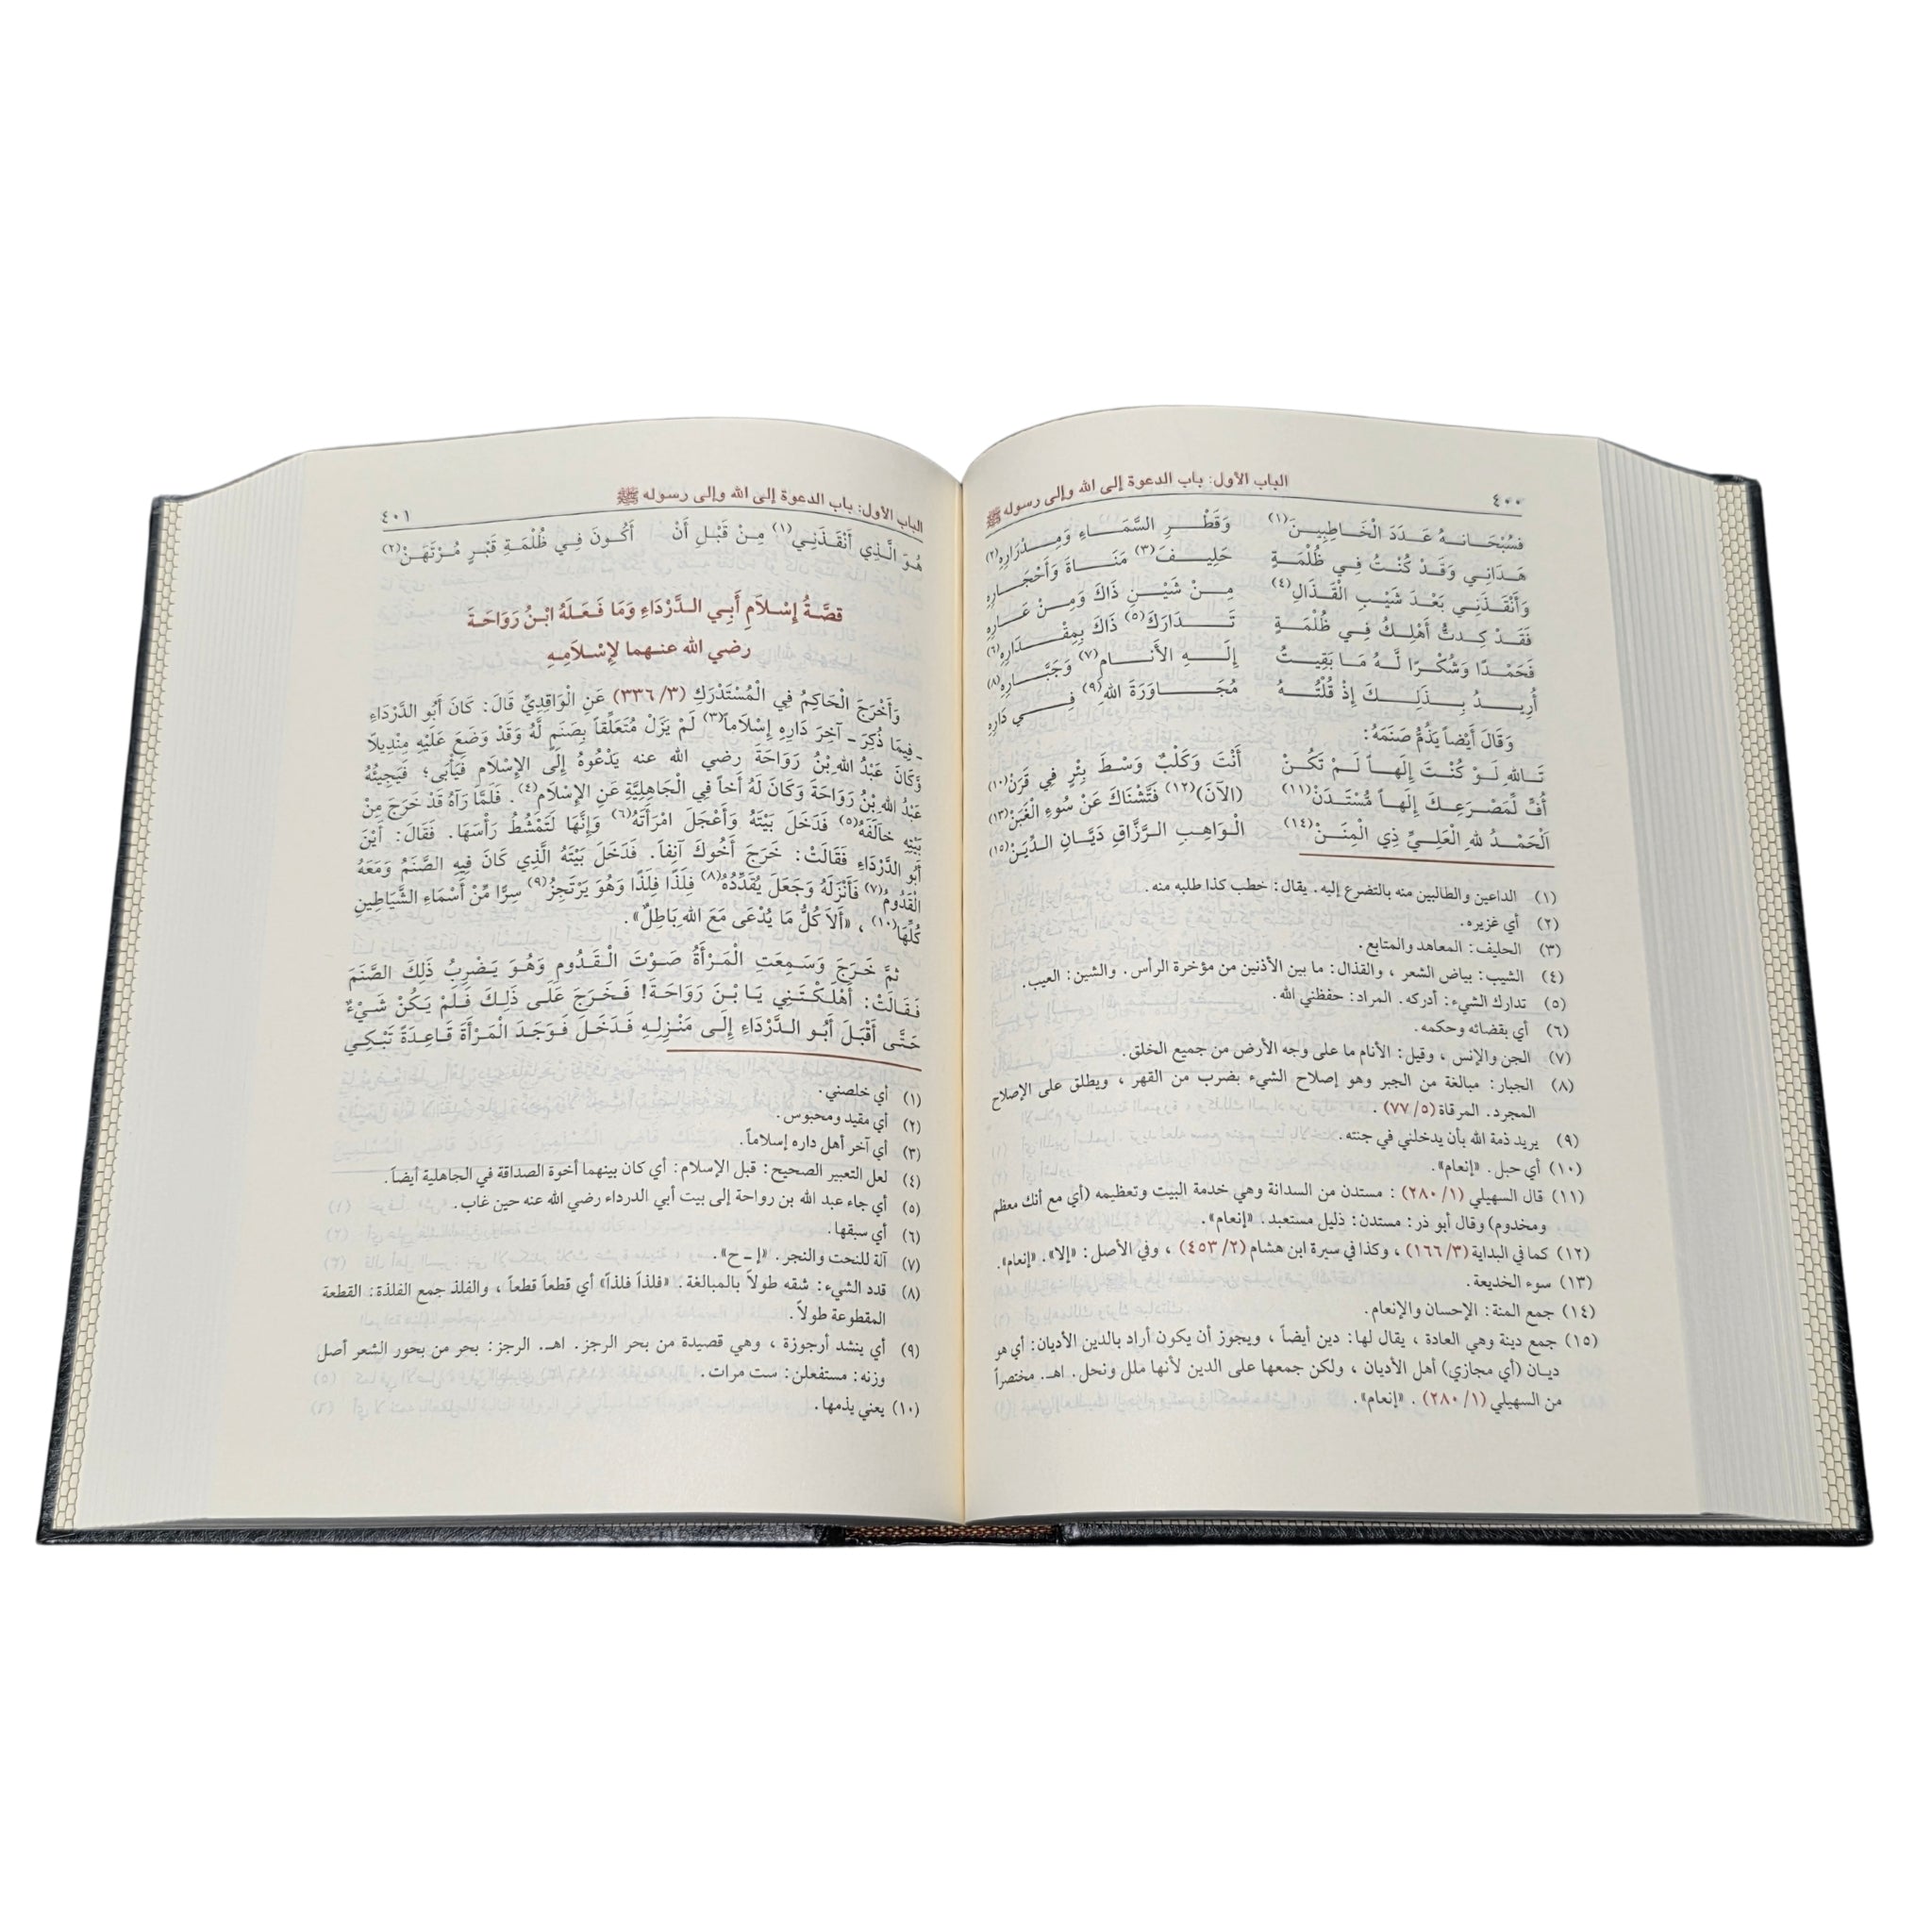 ٤٠٠
الباب الأول: باب الدعوة إلى الله وإلى رسوله ﷺ
فَسُبْحَانَهُ عَدَدَ الْخَاطِبِينَ(١) وَقَطْرِ السَّمَاءِ وَمِدْرَارِهِ(٢)
هَدَانِي وَقَدْ كُنْتُ فِي ظُلْمَةٍ حَلِيفَ(٣) مَنَاةَ وَأَحْجَارِهِ
وَأَنْقَذَنِي بَعْدَ شَيْبِ الْقَذَالِ(٤) مِنْ شَيْنِ ذَاكَ وَمِنْ عَارِهِ
فَقَدْ كِدتُّ أَهْلِكُ فِي ظُلْمَةٍ تَدَارَكَ(٥) ذَاكَ بِمِقْدَارِهِ(٦)
فَحَمْدًا وَشُكْرًا لَّهُ مَا بَقِيتُ إِلَهِ الأَنَامِ(٧) وَجَبَّارِهِ(٨)
أُرِيدُ بِذَلِكَ إِذْ قُلْتُهُ مُجَاوَرَةَ اللهِ(٩) فِي دَارِهِ
وَقَالَ أَيْضاً يَذُمُّ صَنَمَهُ:
تَاللهِ لَوْ كُنْتَ إِلَهاً لَمْ تَكُنْ أَنْتَ وَكَلْبٌ وَسْطَ بِئْرٍ فِي قَرَنْ(١٠)
أُفٍّ لِّمَصْرَعِكَ إِلَهاً مُّسْتَدَنْ(١١) (الآنَ)(١٢) فَتَّشْنَاكَ عَنْ سُوءِ الْغَبَنْ(١٣)
اَلْحَمْدُ للهِ الْعَلِيِّ ذِي الْمِنَنْ(١٤) الْوَاهِبِ الرَّزَّاقِ دَيَّانِ الدِّيَنْ(١٥)
(١) الداعين والطالبين منه بالتضرع إليه. يقال: خطب كذا طلبه منه.
(٢) أي غزيره.
(٣) الحليف: المعاهد والمتابع.
(٤) الشيب: بياض الشعر، والقذال: ما بين الأذنين من مؤخرة الرأس. والشين: العيب.
(٥) تدارك الشيء: أدركه. المراد: حفظني الله.
(٦) أي بقضائه وحكمه.
(٧) الجن والإنس، وقيل: الأنام ما على وجه الأرض من جميع الخلق.
(٨) الجبار: مبالغة من الجبر وهو إصلاح الشيء بضرب من القهر، ويطلق على الإصلاح
المجرد. المرقاة (٥/ ٧٧).
(٩) يريد ذمة الله بأن يدخلني في جنته.
(١٠) أي حبل. «إنعام».
(١١) قال السهيلي (١/ ٢٨٠): مستدن من السدانة وهي خدمة البيت وتعظيمه (أي مع أنك معظم
ومخدوم) وقال أبو ذر: مستدن: ذليل مستعبد. «إنعام».
(١٢) كما في البداية (٣/ ١٦٦)، وكذا في سيرة ابن هشام (٢/ ٤٥٣)، وفي الأصل: «إلا». «إنعام».
(١٣) سوء الخديعة.
(١٤) جمع المنة: الإحسان والإنعام.
(١٥) جمع دينة وهي العادة، يقال لها: دين أيضاً، ويجوز أن يكون أراد بالدين الأديان: أي هو
ديان (أي مجازي) أهل الأديان، ولكن جمعها على الدين لأنها ملل ونحل. اهـ. مختصراً
من السهيلي (١/ ٢٨٠). «إنعام».
الباب الأول: باب الدعوة إلى الله وإلى رسوله ﷺ
٤٠١
هُوَ الَّذِي أَنْقَذَنِي(١) مِنْ قَبْلِ أَنْ أَكُونَ فِي ظُلْمَةِ قَبْرٍ مُرْتَهَنْ(٢)
قصَّةُ إِسْلَامِ أَبِي الدَّرْدَاءِ وَمَا فَعَلَهُ ابْنُ رَوَاحَةَ
رضي الله عنهما لِإِسْلَامِهِ
وَأَخْرَجَ الْحَاكِمُ فِي الْمُسْتَدْرَكِ (٣/ ٣٣٦) عَنِ الْوَاقِدِيِّ قَالَ: كَانَ أَبُو الدَّرْدَاءِ
ـ فِيمَا ذُكِرَ ـ آخِرَ دَارِهِ إِسْلَاماً(٣) لَمْ يَزَلْ مُتَعَلِّقاً بِصَنَمٍ لَّهُ وَقَدْ وَضَعَ عَلَيْهِ مِنْدِيلًا
وَكَانَ عَبْدُ اللهِ بْنُ رَوَاحَةَ رضي الله عنه يَدْعُوهُ إِلَى الإِسْلَامِ فَيَأْبَى؛ فَيَجِيئُهُ
عَبْدُ اللهِ بْنُ رَوَاحَةَ وَكَانَ لَهُ أَخاً فِي الْجَاهِلِيَّةِ عَنِ الإِسْلَامِ(٤). فَلَمَّا رَآهُ قَدْ خَرَجَ مِنْ
بَيْتِهِ خَالَفَهُ(٥) فَدَخَلَ بَيْتَهُ وَأَعْجَلَ امْرَأَتَهُ(٦) وَإِنَّهَا لَتَمْشُطُ رَأْسَهَا. فَقَالَ: أَيْنَ
أَبُو الدَّرْدَاءِ فَقَالَتْ: خَرَجَ أَخُوكَ آنِفاً. فَدَخَلَ بَيْتَهُ الَّذِي كَانَ فِيهِ الصَّنَمُ وَمَعَهُ
الْقَدُومُ(٧) فَأَنْزَلَهُ وَجَعَلَ يُقَدِّدُهُ(٨) فِلَذًا فِلَذًا وَهُوَ يَرْتَجِزُ(٩) سِرًّا مِّنْ أَسْمَاءِ الشَّيَاطِينِ
كُلِّهَا(١٠)، «أَلَا كُلُّ مَا يُدْعَى مَعَ اللهِ بَاطِلٌ».
ثمَّ خَرَجَ وَسَمِعَتِ الْمَرْأَةُ صَوْتَ الْقَدُومِ وَهُوَ يَضْرِبُ ذَلِكَ الصَّنَمَ
فَقَالَتْ: أَهْلَكْتَنِي يَا بْنَ رَوَاحَةَ! فَخَرَجَ عَلَى ذَلِكَ فَلَمْ يَكُنْ شَيْءٌ
حَتَّى أَقْبَلَ أَبُو الدَّرْدَاءِ إِلَى مَنْزِلِهِ فَدَخَلَ فَوَجَدَ الْمَرْأَةَ قَاعِدَةً تَبْكِي
(١) أي خلصني.
(٢) أي مقيد ومحبوس.
(٣) أي آخر أهل داره إسلاماً.
(٤) لعل التعبير الصحيح: قبل الإسلام: أي كان بينهما أخوة الصداقة في الجاهلية أيضاً.
(٥) أي جاء عبد الله بن رواحة إلى بيت أبي الدرداء رضي الله عنه حين غاب.
(٦) أي سبقها.
(٧) آلة للنحت والنجر. «إ ـ ح».
(٨) قدد الشيء: شقه طولاً بالمبالغة. «فلذاً فلذاً» أي قطعاً قطعاً، والفلذ جمع الفلذة: القطعة
المقطوعة طولاً.
(٩) أي ينشد أرجوزة، وهي قصيدة من بحر الرجز. اهـ. الرجز: بحر من بحور الشعر أصل
وزنه: مستفعلن: ست مرات.
(١٠) يعني يذمها.